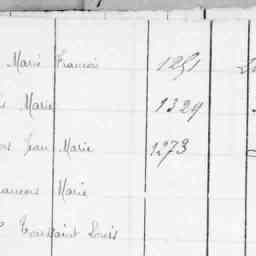 Marie François 1251
Marie 1329
Jean Marie 1273
Marie
Toussaint Louis